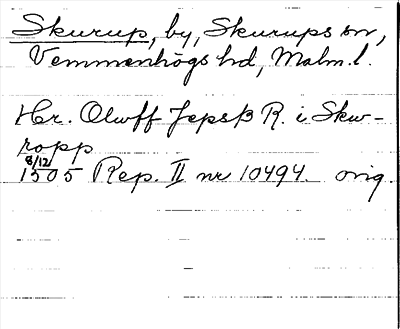 Skurup, by, Skurups sn,
Vemmenhögs hd, Malm. l.
Hr. Olwff Jepsß R. i Skw-
ropp
8/12
1505 Rep. II nr 10494. orig.